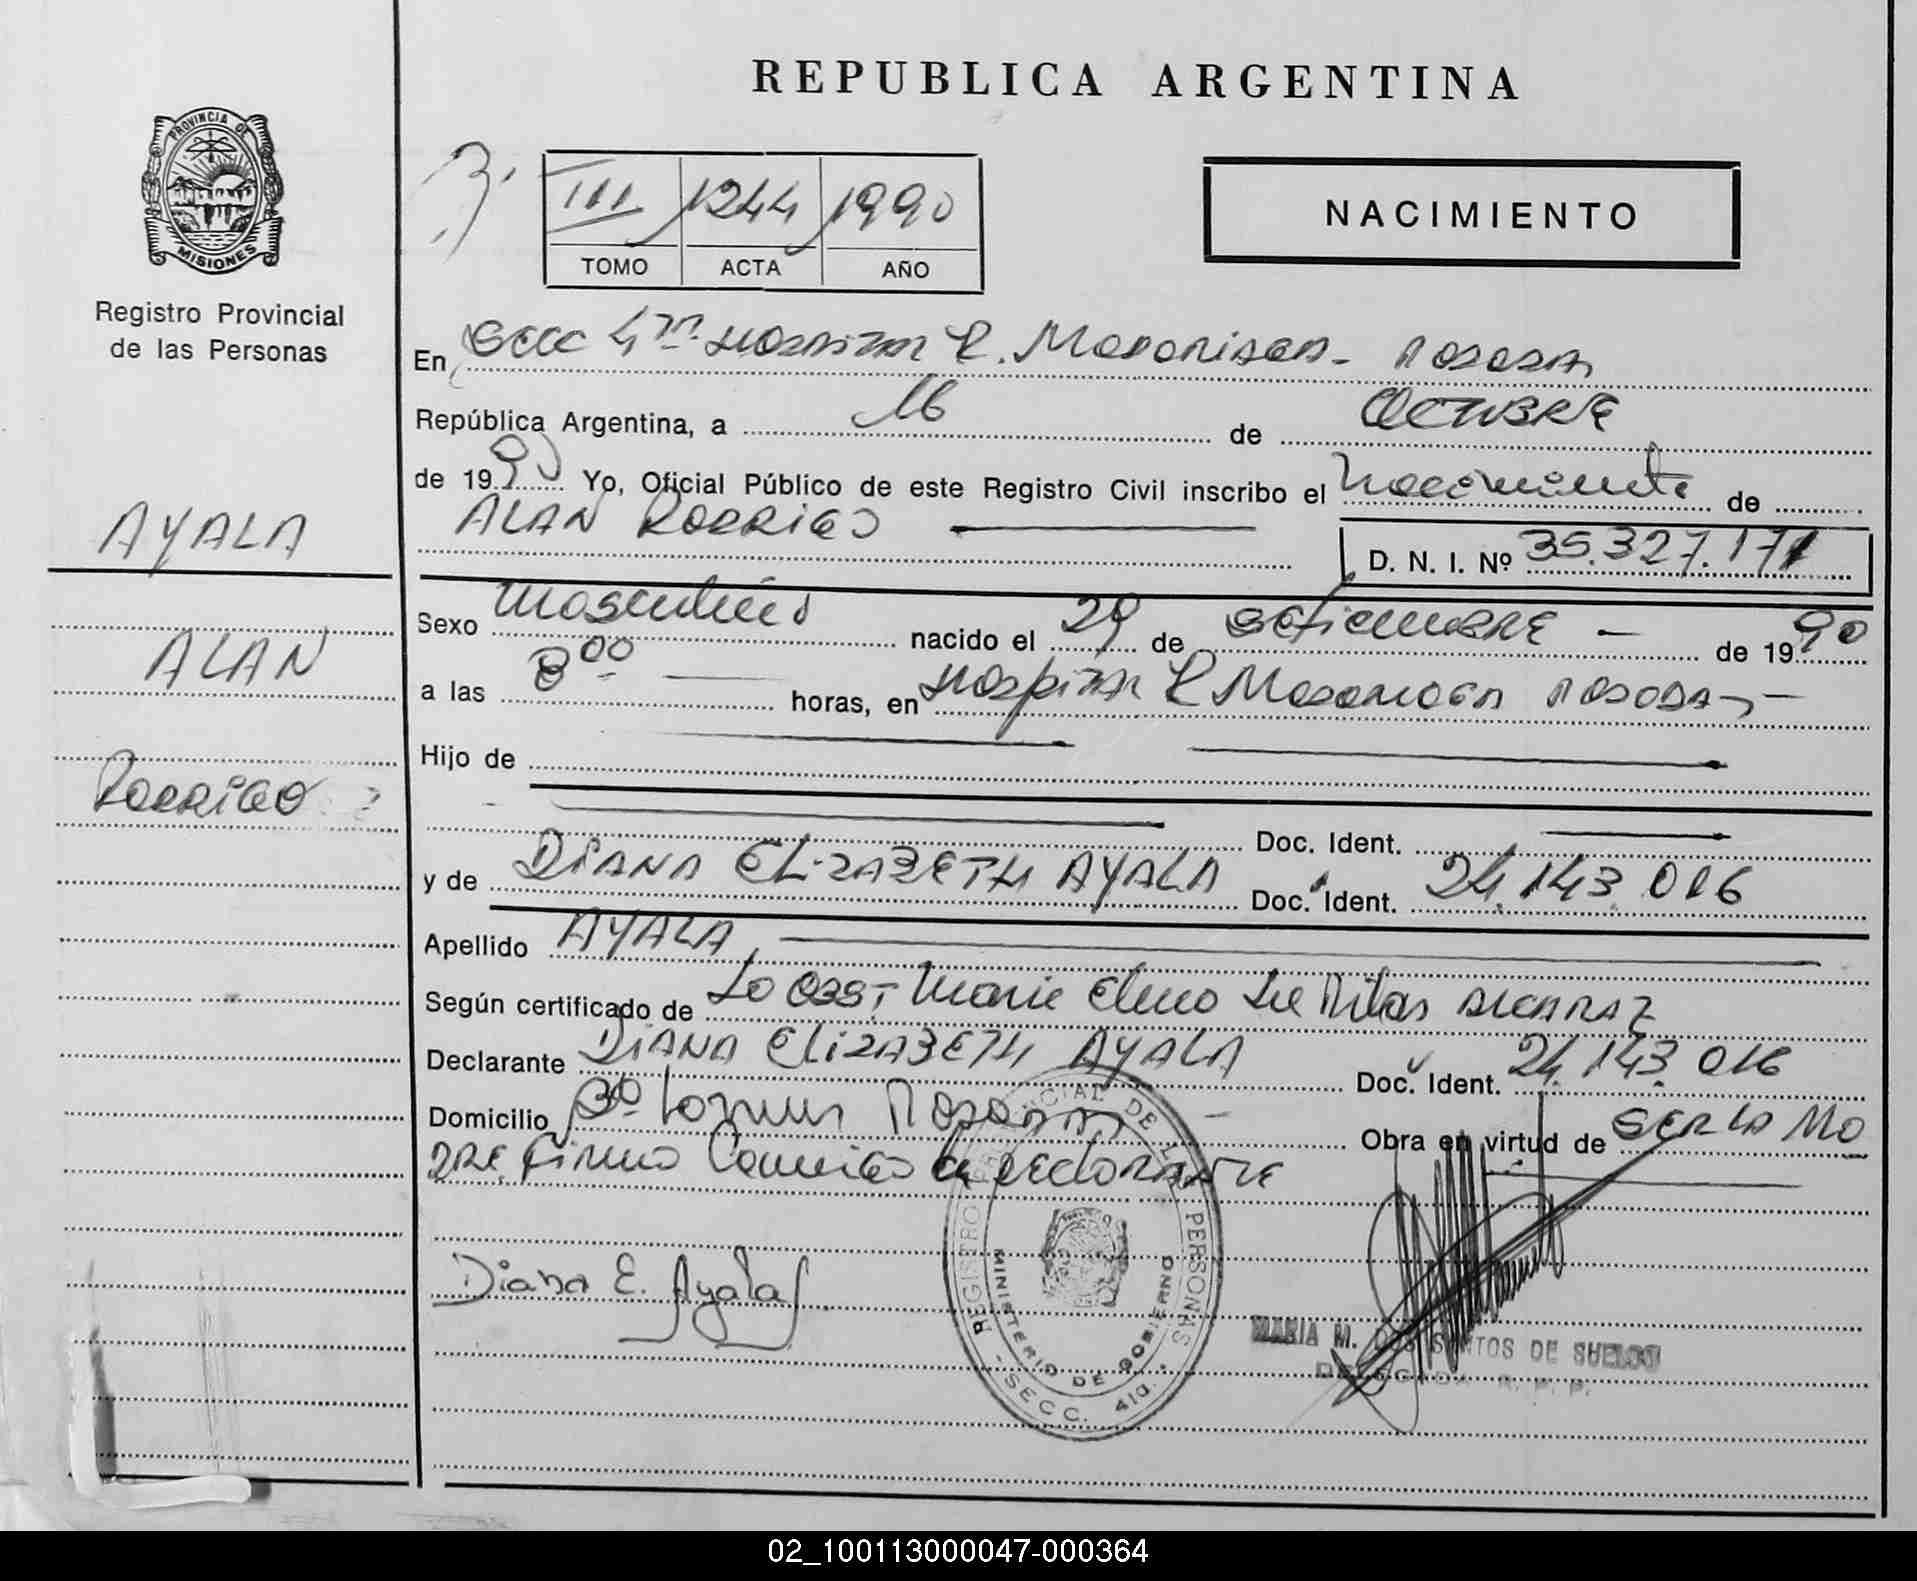 REPUBLICA ARGENTINA
PROVINCIA DE
MISIONES
Registro Provincial
de las Personas
III 1244 1990
TOMO ACTA AÑO
NACIMIENTO
En Secc 4ta Hospital R. Madariaga - Posadas
República Argentina, a 16 de OCTUBRE
de 1990 Yo, Oficial Público de este Registro Civil inscribo el Nacimiento de
ALAN RODRIGO
D. N. I. Nº 35.327.171
AYALA
ALAN
RODRIGO
Sexo masculino nacido el 29 de setiembre de 1990
a las 8 00 horas, en Hospital R Madariaga Posadas
Hijo de
Doc. Ident.
y de DIANA ELIZABETH AYALA Doc. Ident. 24.143.016
Apellido AYALA
Según certificado de La Obst Maria Elena de Alcaraz
Declarante DIANA ELIZABETH AYALA Doc. Ident. 24.143.016
Domicilio Bº Posadas Obra en virtud de SER LA MA
DRE Firma Conmigo la declarante
Diana E. Ayala
REGISTRO PROVINCIAL DE LAS PERSONAS
MINISTERIO DE GOBIERNO
SECC. 4ta.
MARIA M. DOS SANTOS DE SUELDO
DELEGADA R. P. P.
02_100113000047-000364